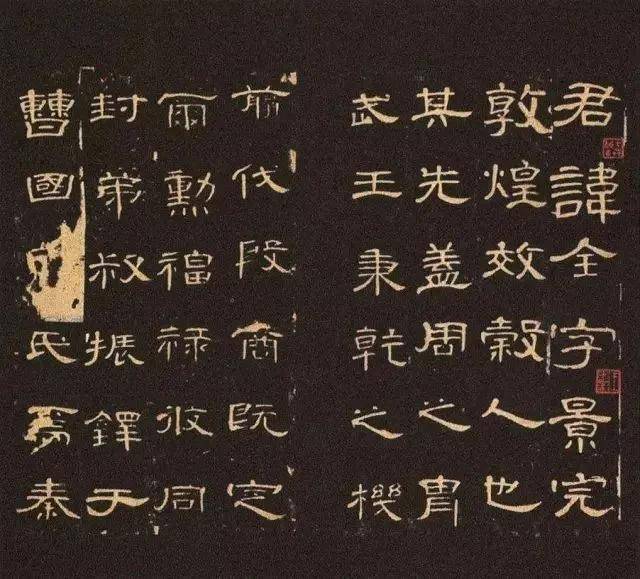 君諱全字景完
敦煌效穀人也
其先蓋周之胄
武王秉乾之機
翦伐殷商既定
爾勳福祿攸同
封弟叔振鐸于
曹國 氏焉秦